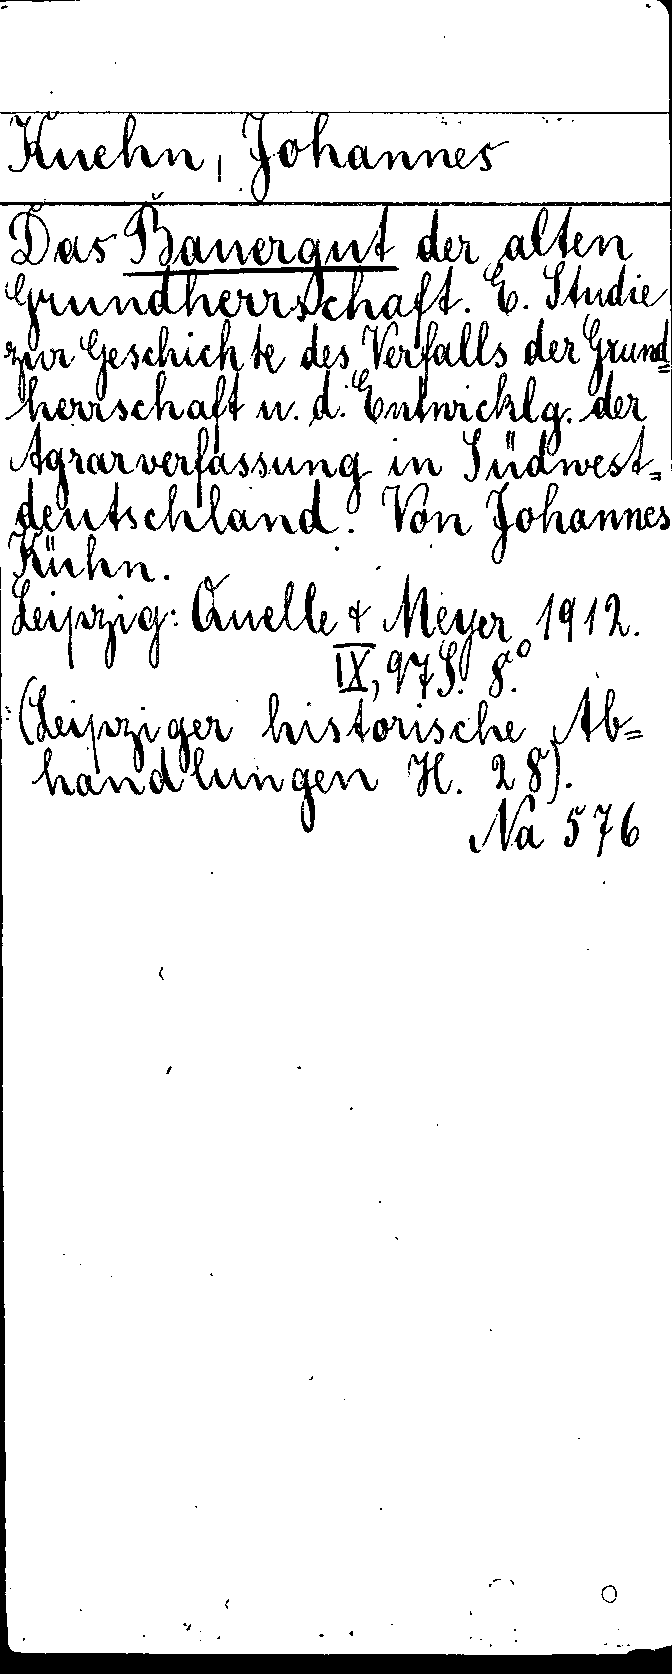 Kuehn, Johannes
Das Bauergut der alten
Grundherrschaft. E. Studie
zur Geschichte des Verfalls der Grund=
herrschaft u. d. Entwicklg. der
Agrarverfassung in Südwest=
deutschland. Von Johannes
Kühn.
Leipzig: Quelle & Meyer 1912.
IX, 97 S. 8.°
(Leipziger historische Ab=
handlungen H. 28).
Na 576